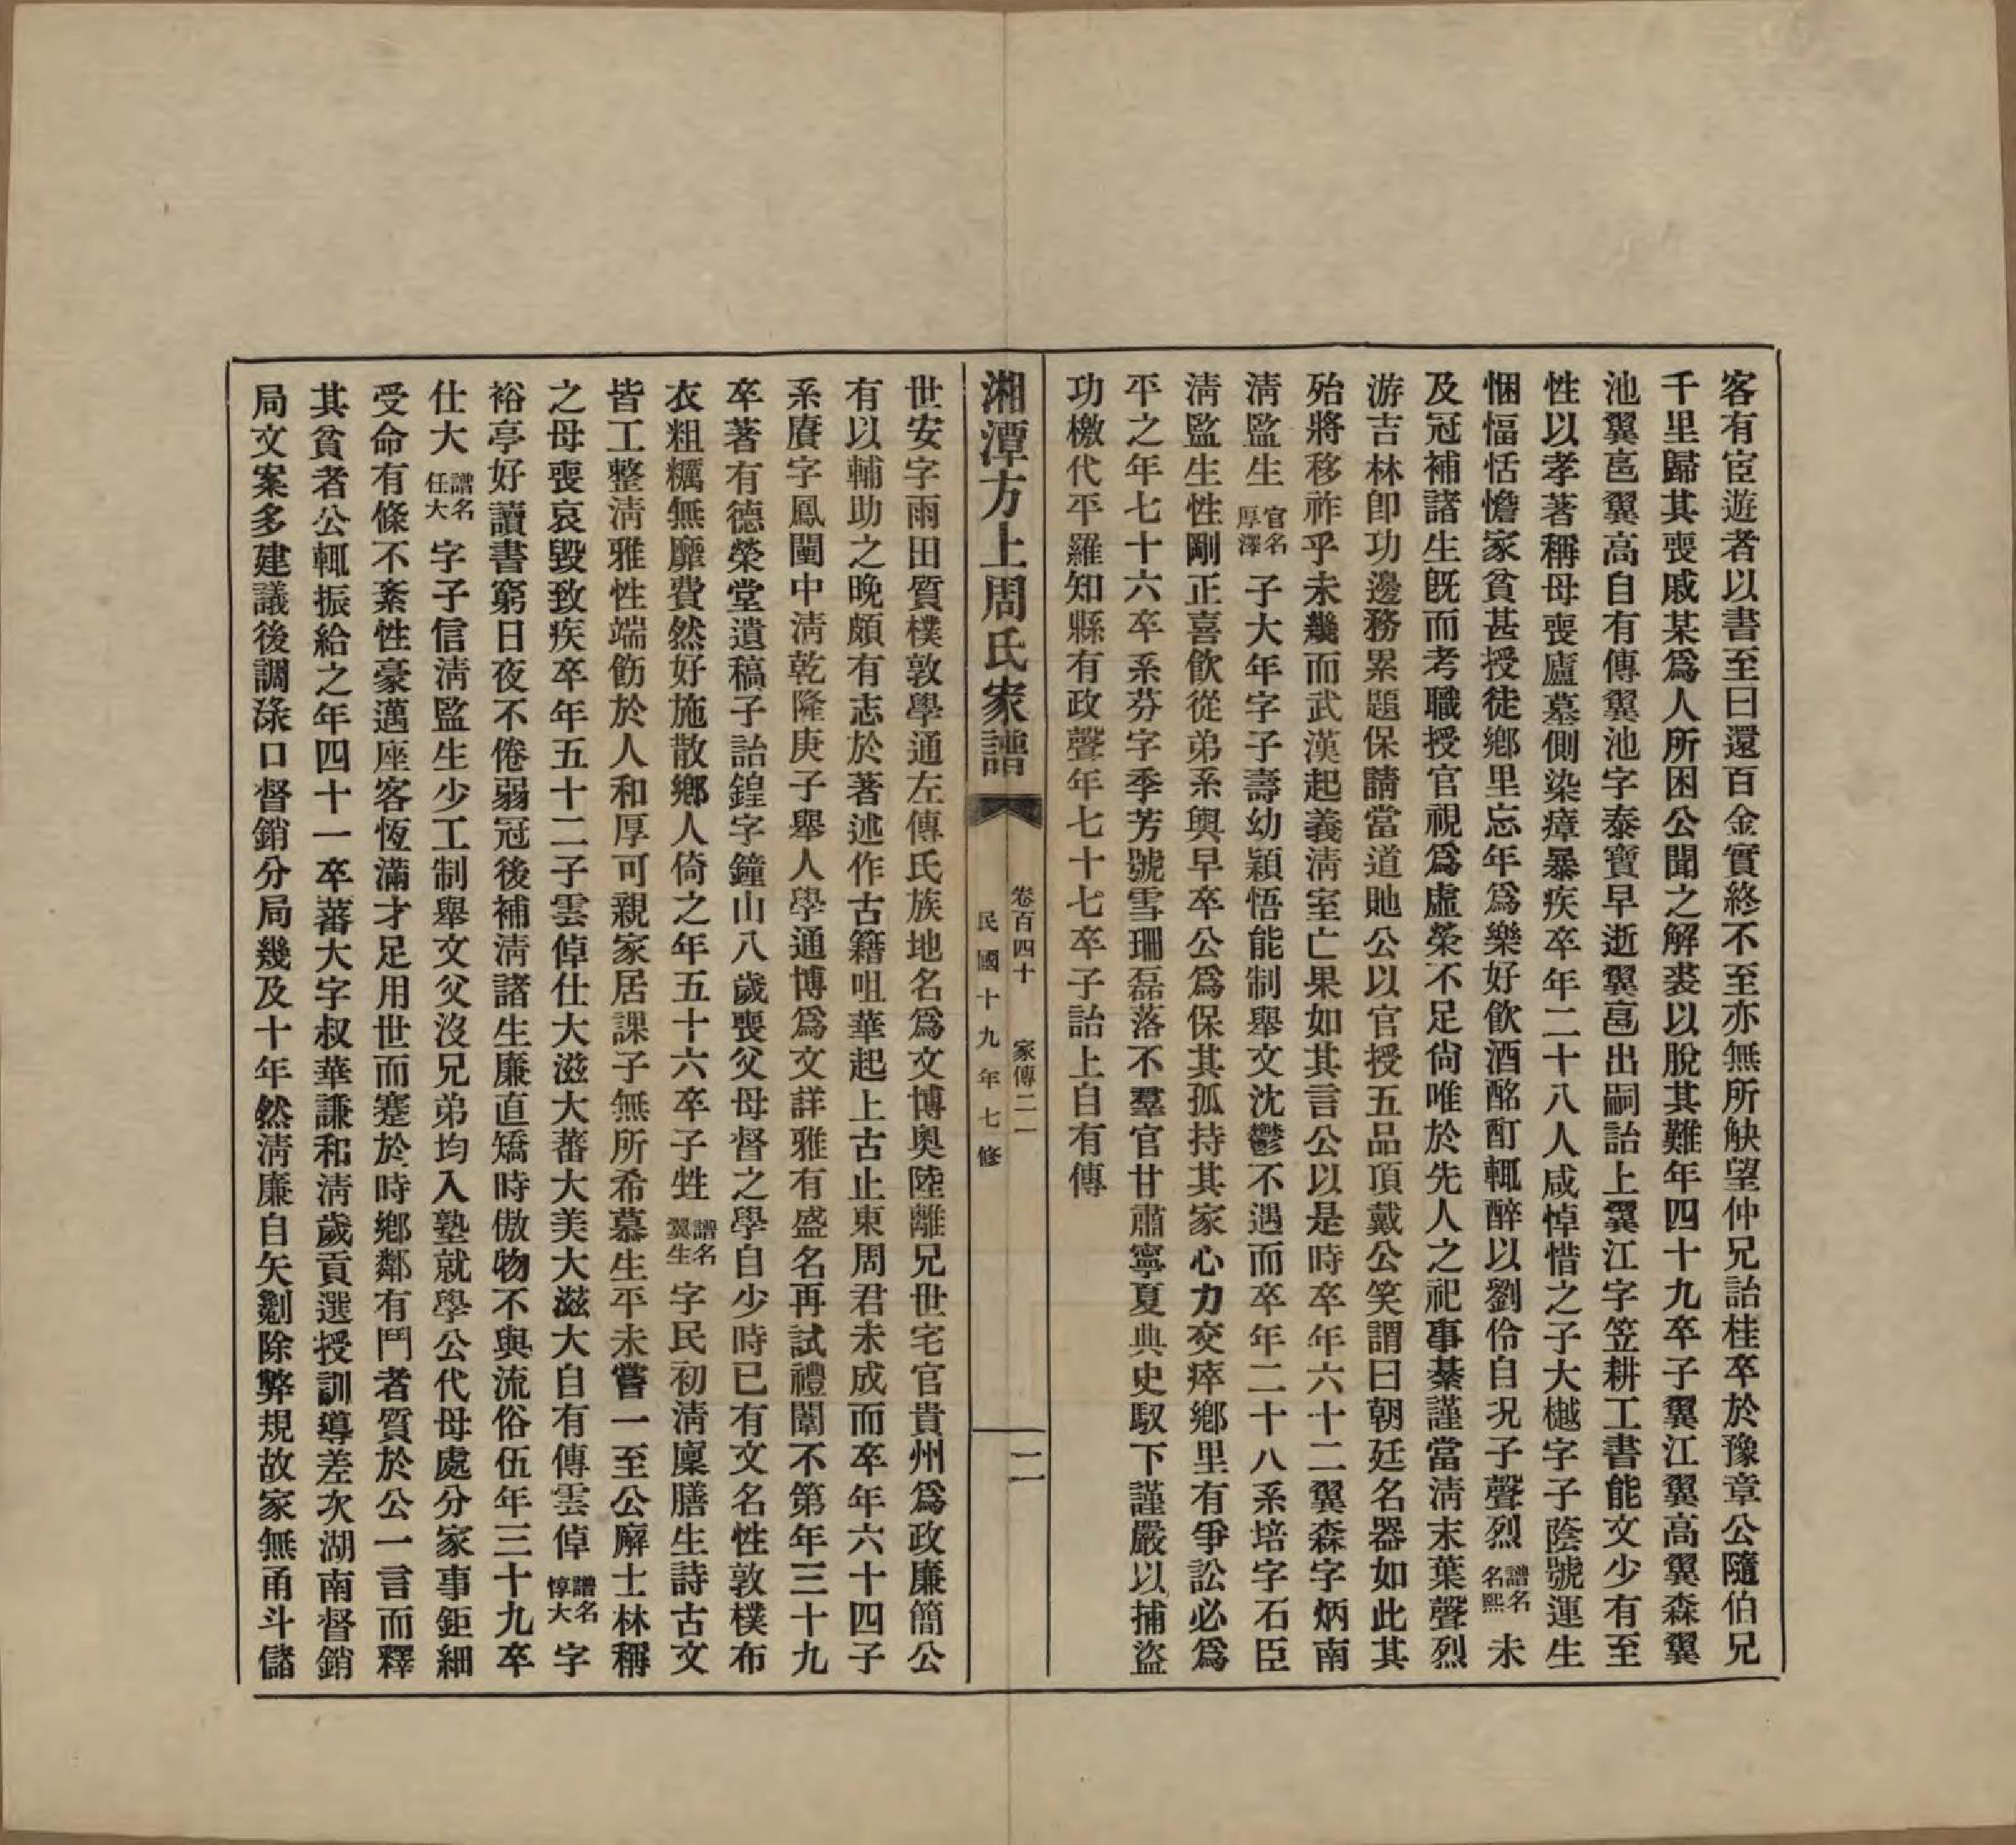 客有宦遊者以書至曰還百金實終不至亦無所觖望仲兄詒桂卒於豫章公隨伯兄
千里歸其喪戚某爲人所困公聞之解裘以脫其難年四十九卒子翼江翼高翼森翼
池翼亯翼高自有傳翼池字泰寶早逝翼亯出嗣詒上翼江字笠耕工書能文少有至
性以孝著稱母喪廬墓側染瘴暴疾卒年二十八人咸悼惜之子大樾字子蔭號運生
悃愊恬憺家貧甚授徒鄉里忘年爲樂好飲酒酩酊輒醉以劉伶自况子聲烈譜名名熙未
及冠補諸生旣而考職授官視爲虛榮不足尙唯於先人之祀事綦謹當淸末葉聲烈
游吉林卽功邊務累題保請當道貤公以官授五品頂戴公笑謂曰朝廷名器如此其
殆將移祚乎未幾而武漢起義淸室亡果如其言公以是時卒年六十二翼森字炳南
淸監生官名厚澤子大年字子壽幼穎悟能制舉文沈鬱不遇而卒年二十八系培字石臣
淸監生性剛正喜飲從弟系輿早卒公爲保其孤持其家心力交瘁鄉里有爭訟必爲
平之年七十六卒系芬字季芳號雪珊磊落不羣官甘肅寧夏典史馭下謹嚴以捕盜
功檄代平羅知縣有政聲年七十七卒子詒上自有傳
湘潭方上周氏家譜
卷百四十　家傳二一
民國十九年七修
二
世安字雨田質樸敦學通左傳氏族地名爲文博奧陸離兄世宅官貴州爲政廉簡公
有以輔助之晚頗有志於著述作古籍咀華起上古止東周君未成而卒年六十四子
系賡字鳳闓中淸乾隆庚子舉人學通博爲文詳雅有盛名再試禮闈不第年三十九
卒著有德榮堂遺稿子詒鍠字鐘山八歲喪父母督之學自少時已有文名性敦樸布
衣粗糲無靡費然好施散鄉人倚之年五十六卒子甡譜名翼生字民初淸廩膳生詩古文
皆工整淸雅性端飭於人和厚可親家居課子無所希慕生平未嘗一至公廨士林稱
之母喪哀毀致疾卒年五十二子雲倬仕大滋大蕃大美大滋大自有傳雲倬譜名惇大字
裕亭好讀書窮日夜不倦弱冠後補淸諸生廉直矯時傲物不與流俗伍年三十九卒
仕大譜名任大字子信淸監生少工制舉文父沒兄弟均入塾就學公代母處分家事鉅細
受命有條不紊性豪邁座客恆滿才足用世而蹇於時鄉鄰有鬥者質於公一言而釋
其貧者公輒振給之年四十一卒蕃大字叔華謙和淸歲貢選授訓導差次湖南督銷
局文案多建議後調淥口督銷分局幾及十年然淸廉自矢剗除弊規故家無甬斗儲